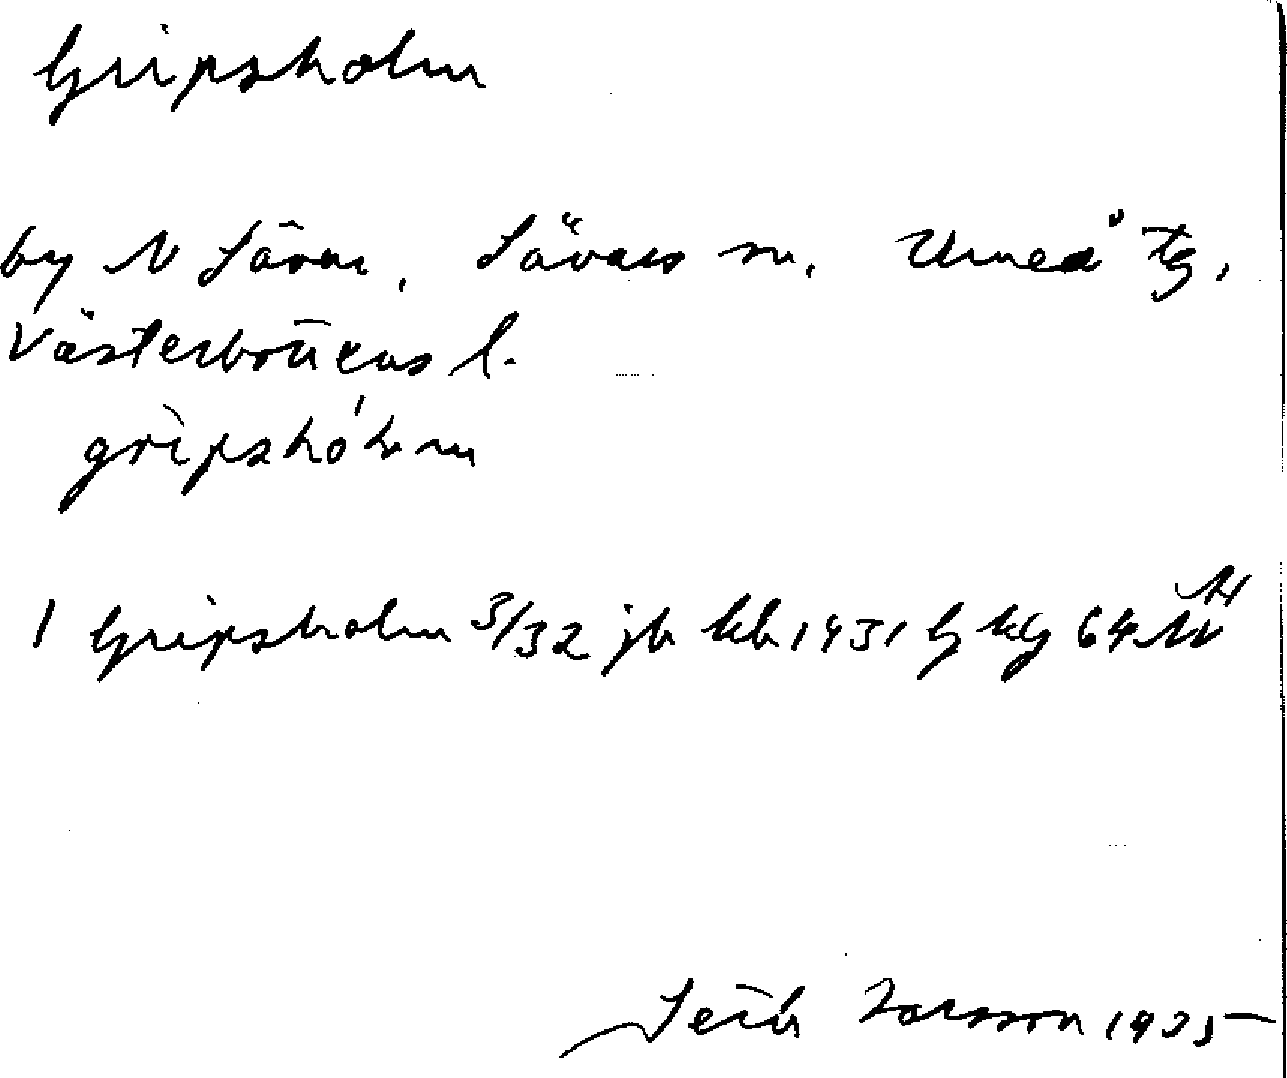 Gripsholm
by N Sävar, Sävars sn, Umeå tg,
Västerbottens l.
1 Gripsholm 3/32 jb kb 1931 G kg 64
Seth Larsson 1935